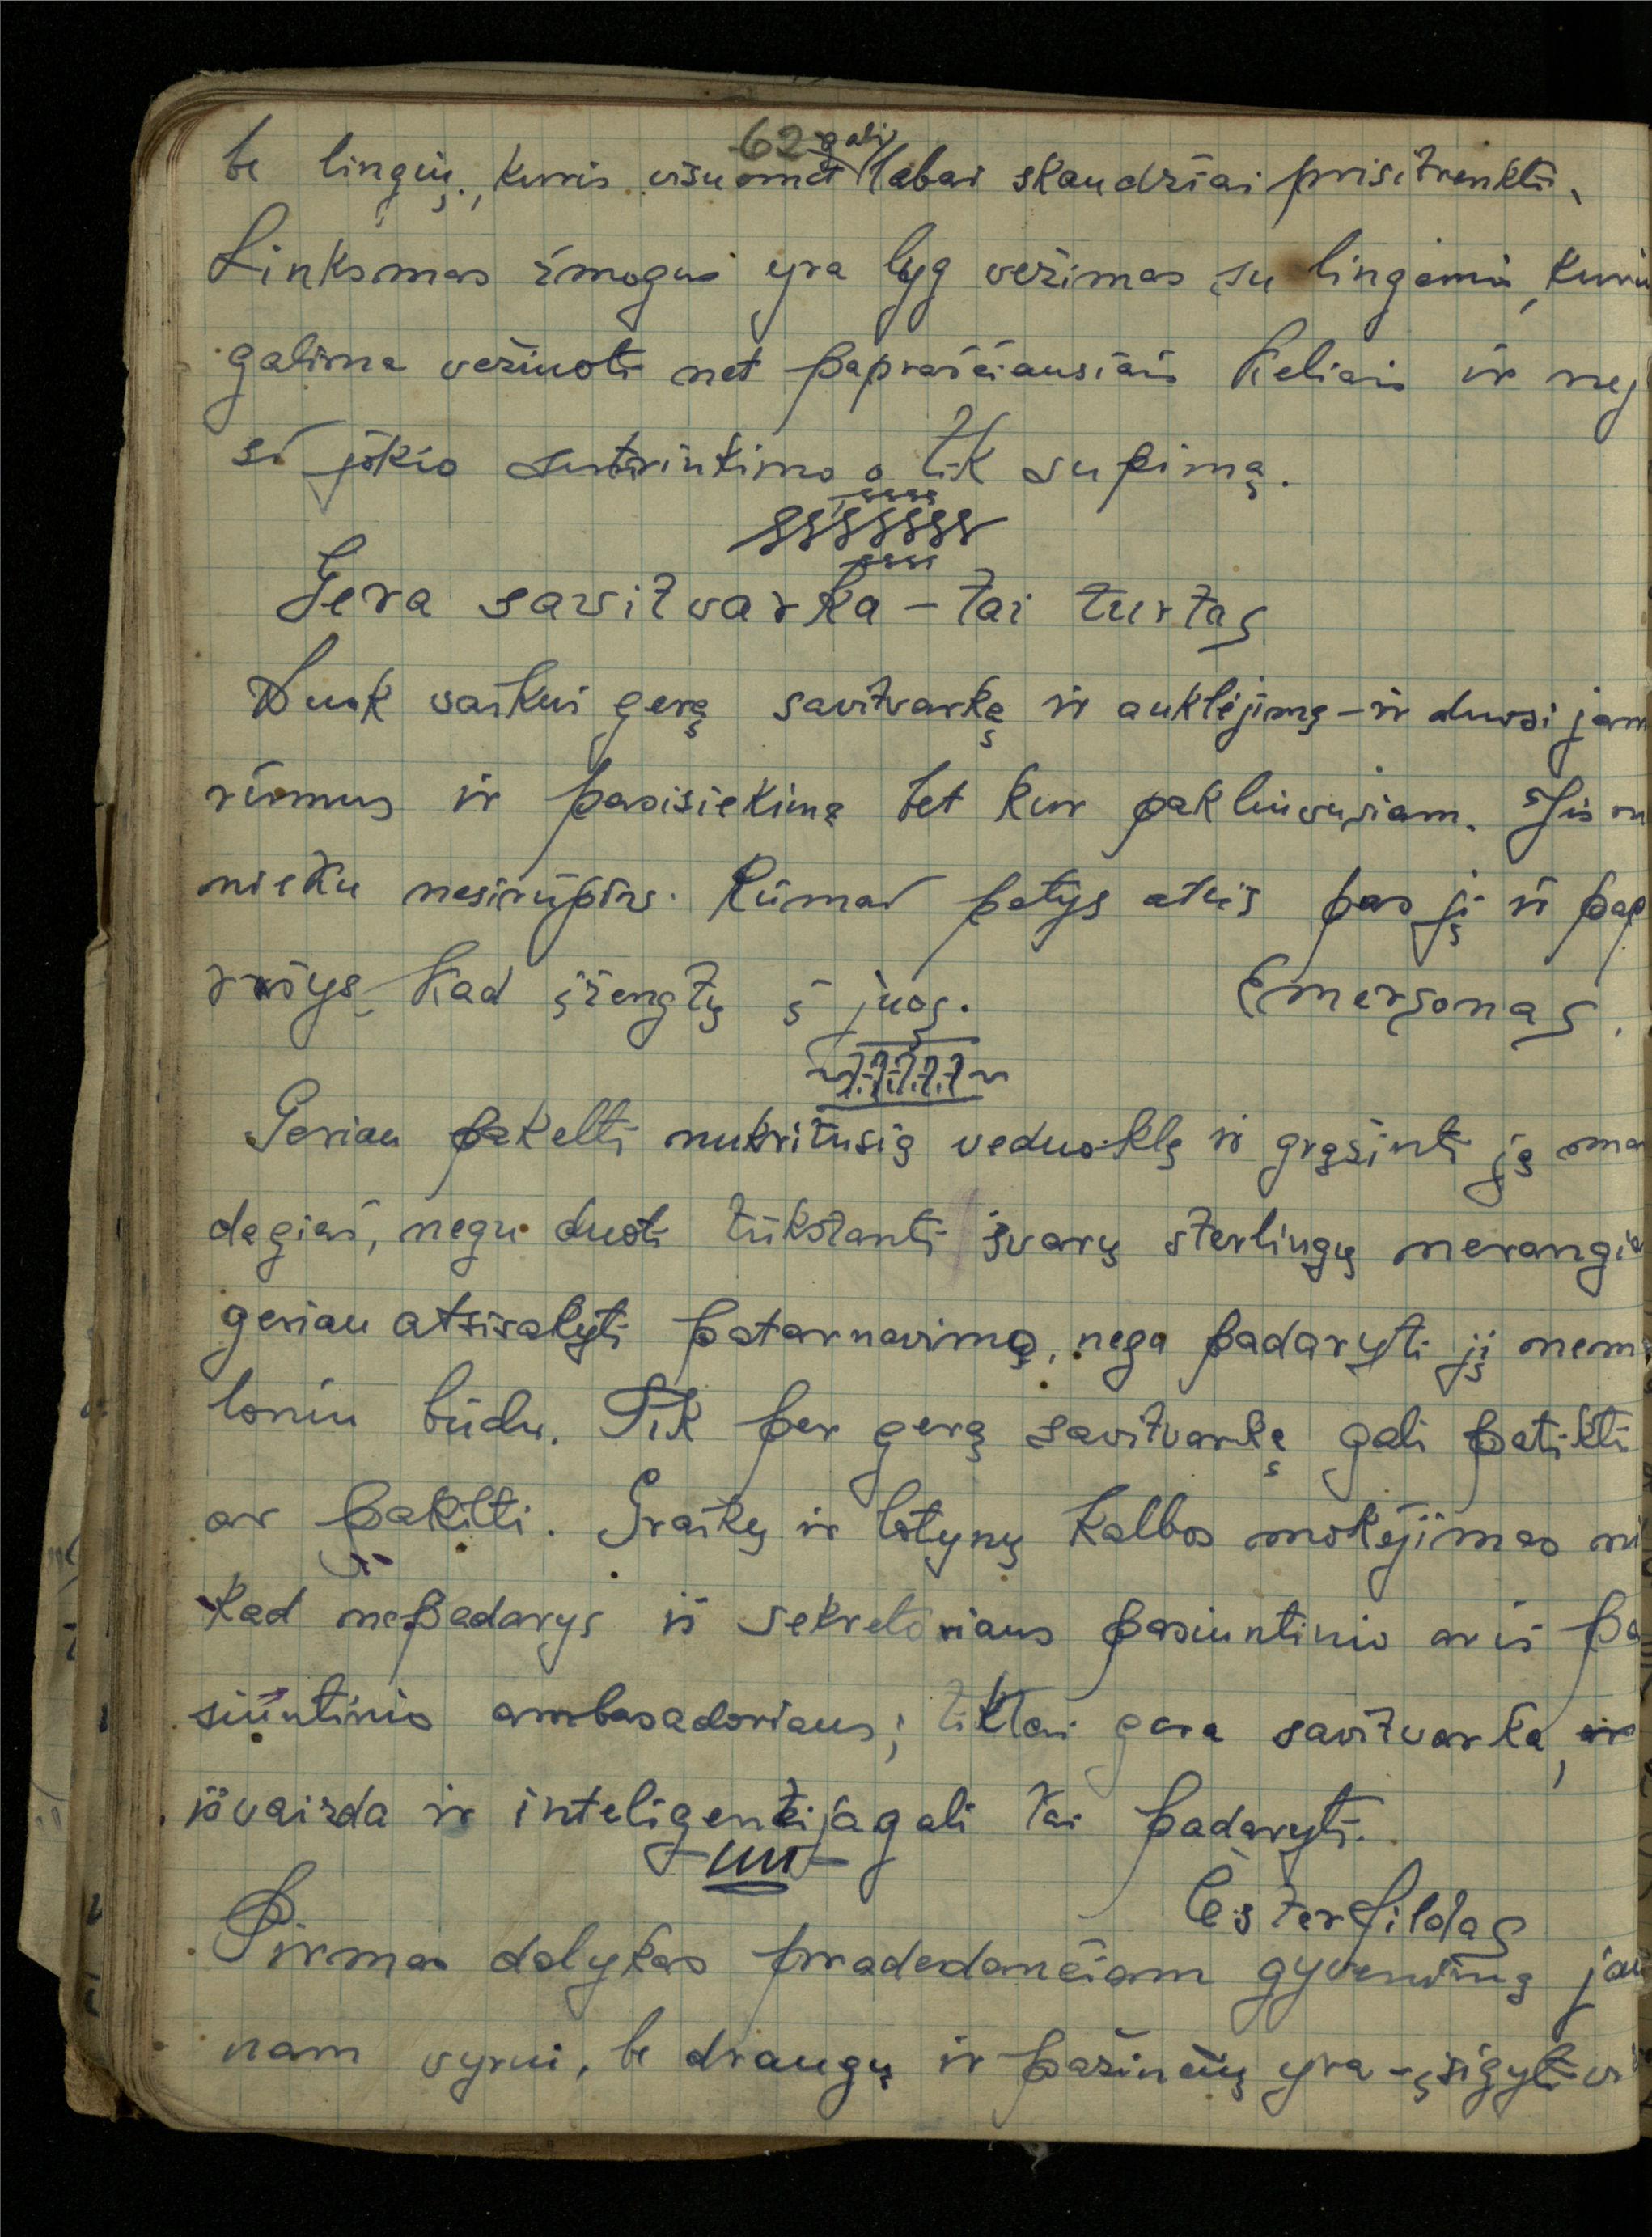 62
be lingių, kuris visuomet gali labai skaudžiai prisitrenkti.
Linksmas žmogus yra lyg vežimas su lingėmis, kuriu
galima važiuoti net paprasčiausiais keliais ir nej
si jokio sutrinkimo, o tik supimą.
Gera savitvarka – tai turtas
Duok vaikui gerą savitvarką ir auklėjimą – ir duosi jam
rūmus ir pasisiekimą bet kur pakliuvusiam. Jis
nieku nesirūpins. Rūmai patys ateis pas jį ir pap
rašys, kad įžengtų į juos. Emersonas.
Geriau pakelti nukritusią veduoklę ir grąžinti ją man
dagiai, negu duoti tūkstantį svarų sterlingų nerangia
geriau atsisakyti patarnavimą, nega padaryti jį nema
loniu būdu. Tik per gerą savitvarką gali patikti
ar pakilti. Graikų ir lotynų kalbos mokėjimas ni
kad nepadarys iš sekretoriaus pasiuntinio ar iš pa
siuntinio ambasadoriaus; tiktai gera savitvarka,
išvaizda ir inteligentija gali tai padaryti.
Česterfildas
Pirmas dalykas pradedančiam gyvenimą jau
nam vyrui, be draugų ir pažinčių yra – įsigyti